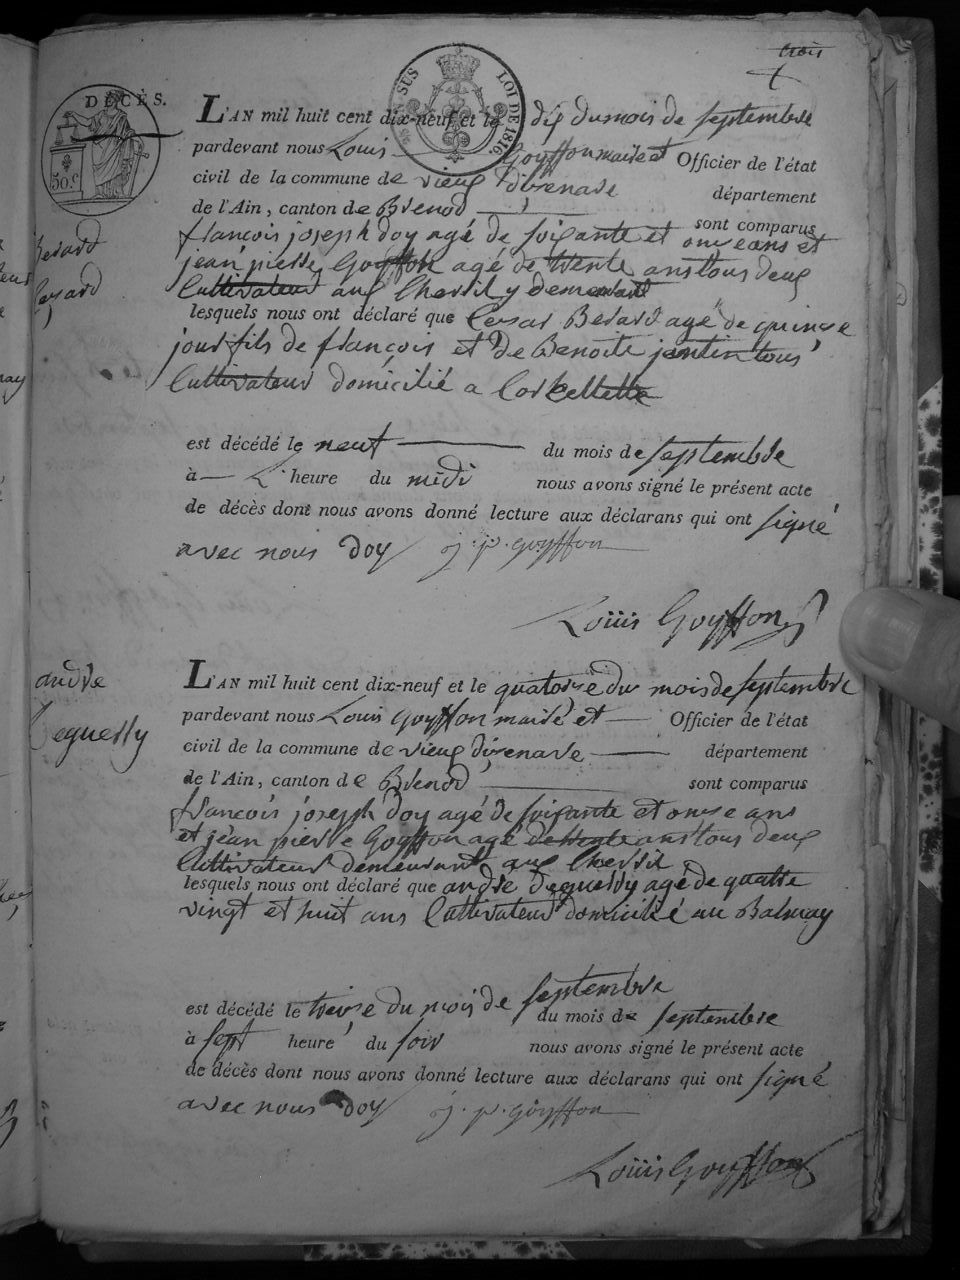 trois
DÉCÈS.
50.c
SUS
LOI DE 1816.
L'AN mil huit cent dix-neuf et le dix du mois de septembre
pardevant nous Louis Goyffon maire et Officier de l'état
civil de la commune de vieux d'izenave département
de l'Ain, canton de Brenod sont comparus
françois joseph doy agé de soixante et onze ans et
jean pierre Goyffon agé de trente ans tous deux
Cultivateur aux Chevril y demeurant
lesquels nous ont déclaré que Cesar Berard agé de quinze
jour fils de françois et de Benoite jantin tous
Cultivateur domicilié a Corbellette
est décédé le neuf du mois de septembre
à L' heure du midi nous avons signé le présent acte
de décès dont nous avons donné lecture aux déclarans qui ont signé
avec nous doy j. p. goyffon
Louis Goyffon
andre
Deguerry
L'AN mil huit cent dix-neuf et le quatorze du mois de septembre
pardevant nous Louis Goyffon maire et Officier de l'état
civil de la commune de vieux d'izenave département
de l'Ain, canton de Brenod sont comparus
françois joseph doy agé de soixante et onze ans
et jean pierre Goyffon agé de trente ans tous deux
Cultivateur demeurant aux Chevril
lesquels nous ont déclaré que andre Deguerry agé de quatre
vingt et huit ans Cultivateur domicilié au Balmay
est décédé le treize du mois de septembre
du mois de septembre
à sept heure du soir nous avons signé le présent acte
de décès dont nous avons donné lecture aux déclarans qui ont signé
avec nous doy j. p. goyffon
Louis Goyffon